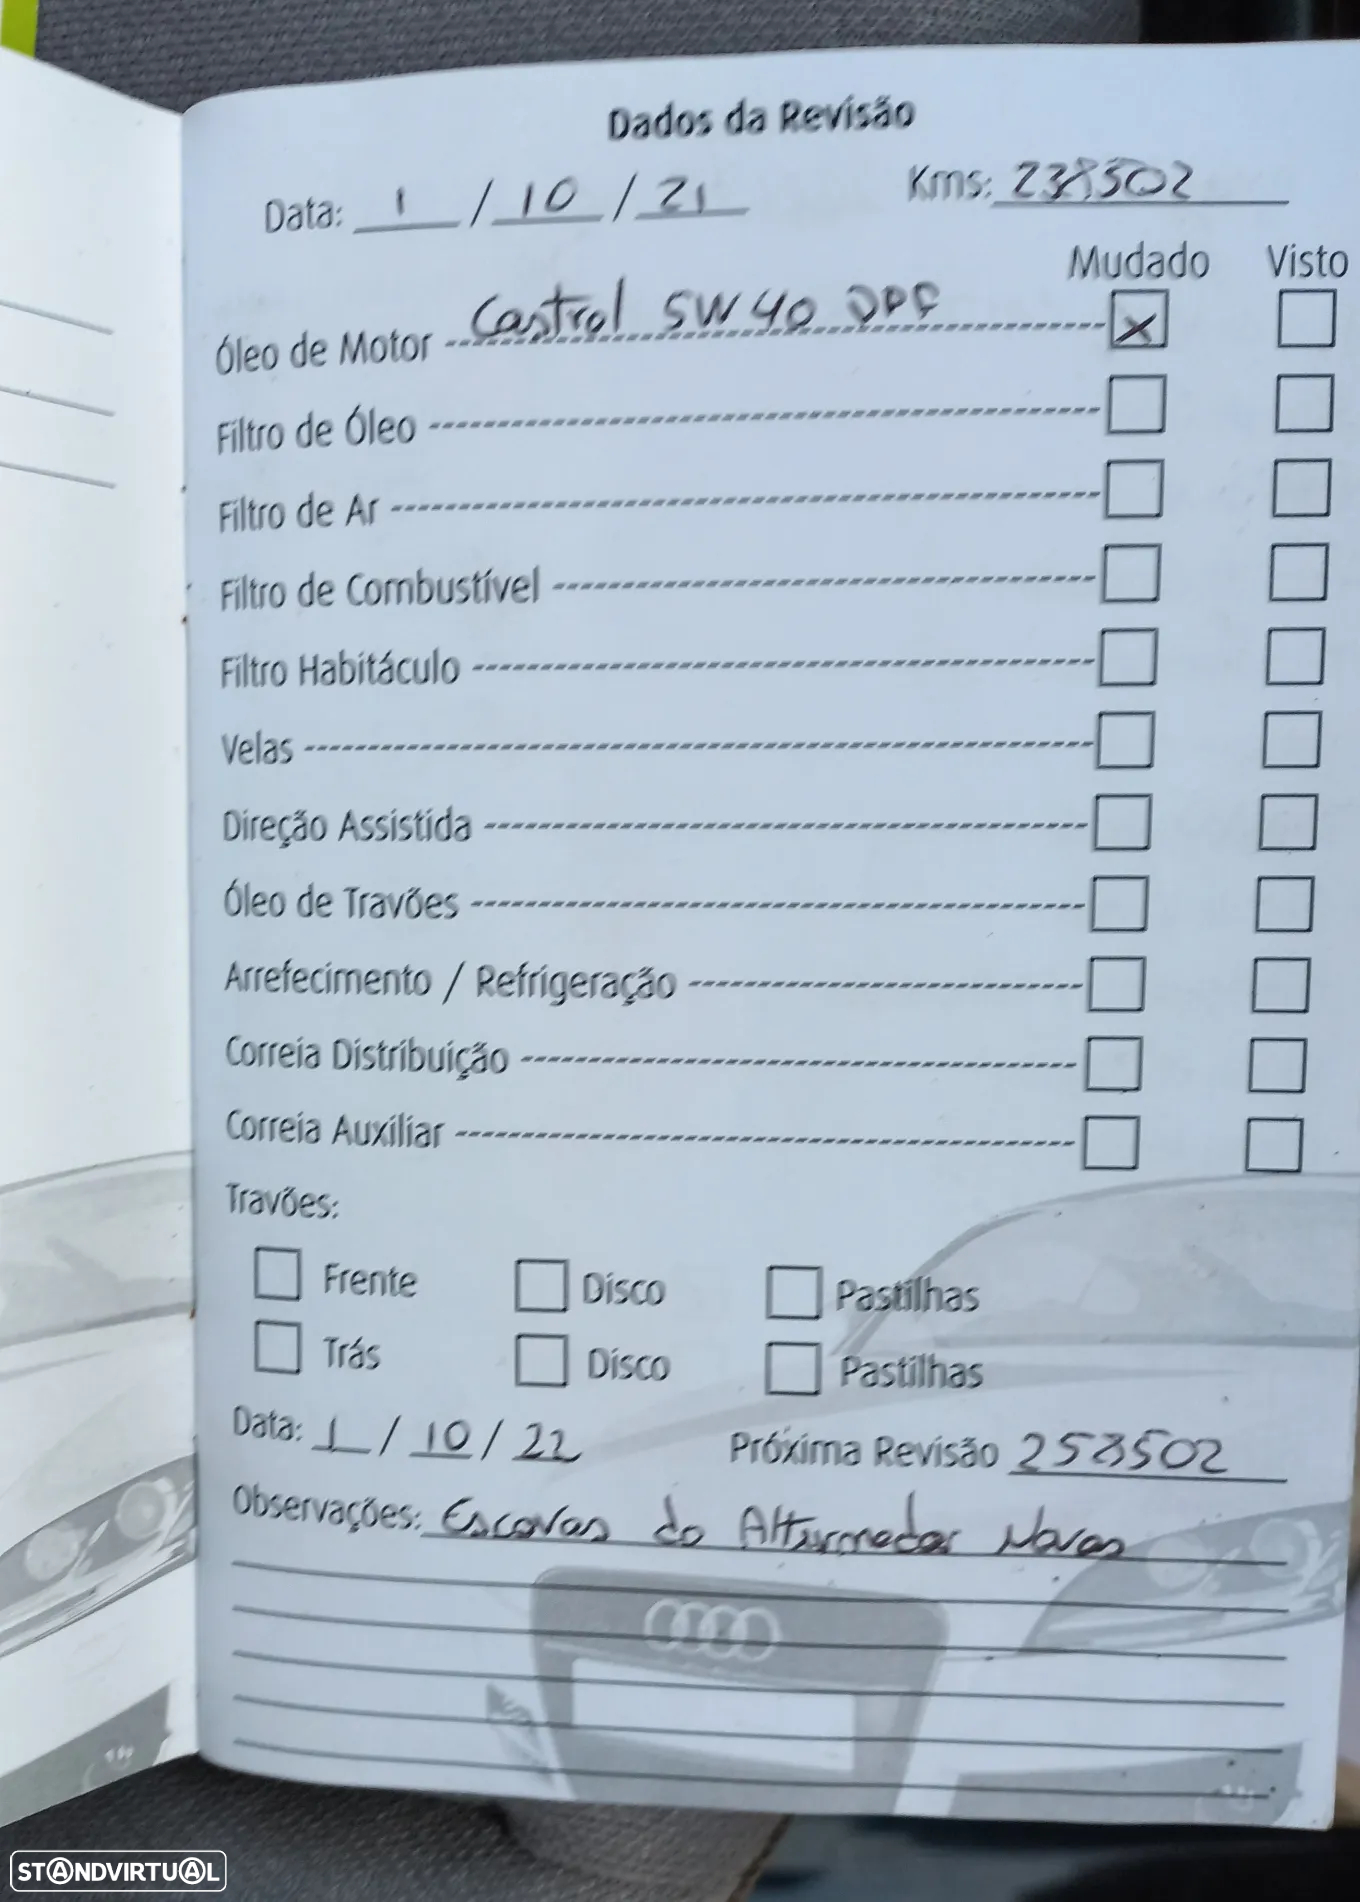 Dados da Revisão
Data: 1 / 10 / 21 Kms: 238502
Mudado Visto
Óleo de Motor Castrol 5W40 DPF X
Filtro de Óleo
Filtro de Ar
Filtro de Combustível
Filtro Habitáculo
Velas
Direção Assistida
Óleo de Travões
Arrefecimento / Refrigeração
Correia Distribuição
Correia Auxiliar
Travões:
Frente Disco Pastilhas
Trás Disco Pastilhas
Data: 1 / 10 / 22 Próxima Revisão 258502
Observações: Escovas do Alturmador Novas
STANDVIRTUAL